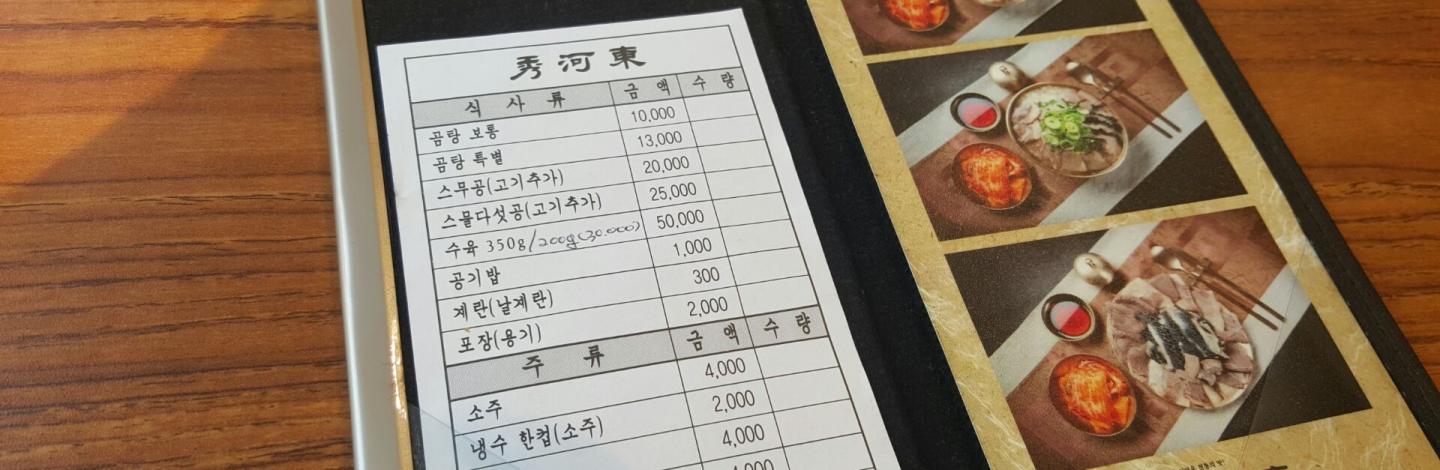 秀河東
식 사 류 금 액 수 량
곰탕 보통 10,000
곰탕 특별 13,000
스무공(고기추가) 20,000
스물다섯공(고기추가) 25,000
수육 350g/200g(30.000) 50,000
공기밥 1,000
계란(날계란) 300
포장(용기) 2,000
주 류 금 액 수 량
소주 4,000
냉수 한컵(소주) 2,000
4,000